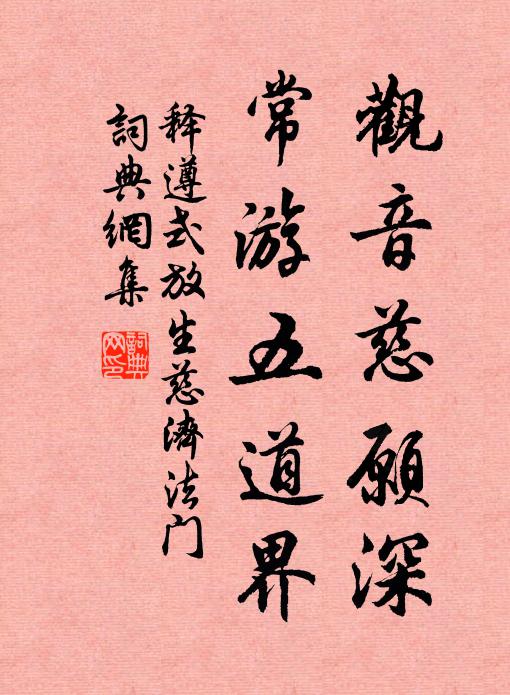 觀音慈願深
常游五道界
释遵式放生慈濟法门
詞典網集
詞典
网印